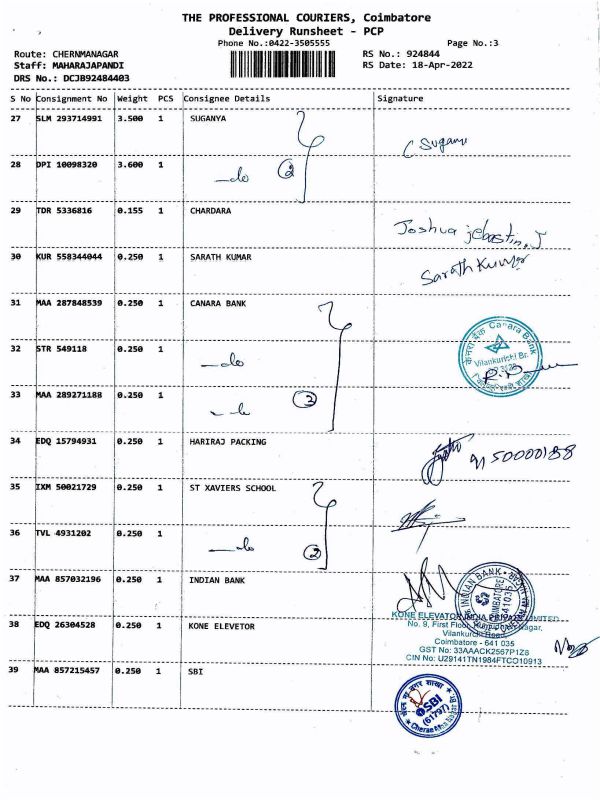 THE PROFESSIONAL COURIERS, Coimbatore
Delivery Runsheet - PCP
Phone No.:0422-3505555
Page No.:3
Route: CHERNMANAGAR
RS No.: 924844
Staff: MAHARAJAPANDI
RS Date: 18-Apr-2022
DRS No.: DCJB92484403
S No Consignment No Weight PCS Consignee Details Signature
27 SLM 293714991 3.500 1 SUGANYA
28 DPI 10098320 3.600 1 —do 2
29 TDR 5336816 0.155 1 CHARDARA Joshua jebastin.J
30 KUR 558344044 0.250 1 SARATH KUMAR Sarath Kumar
31 MAA 287848539 0.250 1 CANARA BANK
केनरा बैंक Canara Bank
Vilankurichi Br.
32 STR 549118 0.250 1 —do
33 MAA 289271188 0.250 1 3
34 EDQ 15794931 0.250 1 HARIRAJ PACKING
35 IXM 50021729 0.250 1 ST XAVIERS SCHOOL
36 TVL 4931202 0.250 1 —do 2
37 MAA 857032196 0.250 1 INDIAN BANK
INDIAN BANK
COIMBATORE
641035
KONE ELEVATOR INDIA PRIVATE LIMITED
38 EDQ 26304528 0.250 1 KONE ELEVETOR
No. 9, First Floor, Nagar,
Vilankurichi Road,
Coimbatore - 641 035
GST No: 33AAACK2567P1Z8
CIN No: U29141TN1984FTC010913
39 MAA 857215457 0.250 1 SBI
SBI
(61797)